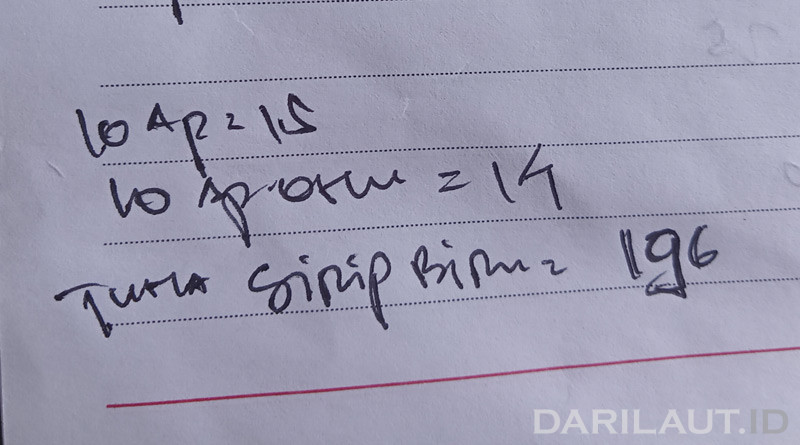 10 Ap = 15
10 Ap
= 14
Tuna Sirip Biru = 196
DARILAUT.ID